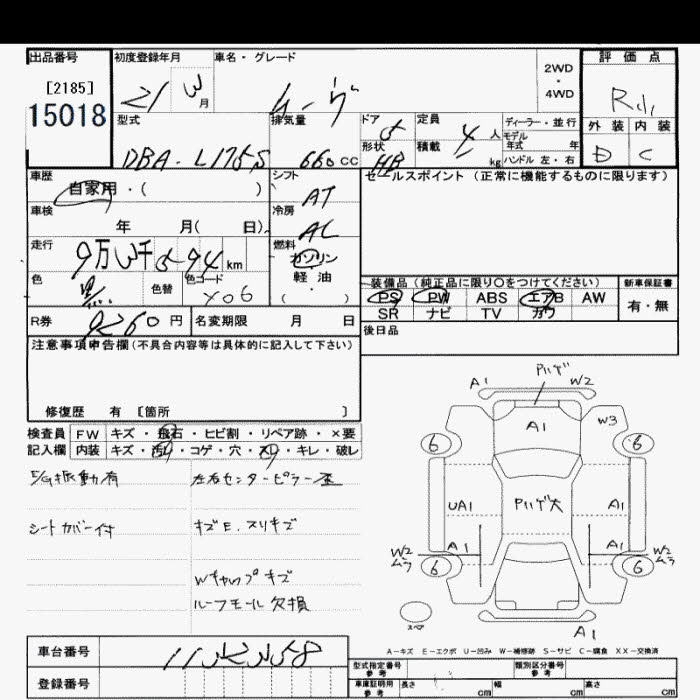 出品番号
[2185]
15018
初度登録年月
21 3 月
車名・グレード
ムーヴ
2WD
・
4WD
評価点
R
外装 内装
D C
型式
DBA-L175S
排気量
660 cc
ドア
5
形状
HB
定員
4 人
積載
kg
ディーラー・並行
モデル
年式 年
ハンドル 左・右
車歴
自家用・( )
シフト
AT
セールスポイント (正常に機能するものに限ります)
車検
年 月( 日)
冷房
AC
走行
9万3千594 km
燃料
ガソリン
軽・油
( )
色
黒
色替
色コード
X06
装備品 (純正品に限り○をつけてください)
PS PW ABS エアB AW
SR ナビ TV カワ
新車保証書
有・無
R券
9260 円
名変期限 月 日
後日品
注意事項申告欄(不具合内容等は具体的に記入して下さい)
修復歴 有 [箇所 ]
検査員 FW キズ・飛石・ヒビ割・リペア跡・×要
記入欄 内装 キズ・汚れ・コゲ・穴・スリ・キレ・破レ
E/G振動有
左右センターピラー歪
シートカバー付
キズE.スリキズ
Wキャップキズ
ルーフモール欠損
Pハゲ
A1 W2
A1 W3
6 6
UA1 Pハゲ大 A1
W2 A1 A1 W2
ムラ ムラ
6 6
スペア
A1
A-キズ E-エクボ U-凹み W-補修跡 S-サビ C-腐食 XX-交換済
車台番号
登録番号
型式指定番号
参考
類別区分番号
参考
車庫証明用
参考
長さ cm 幅 cm 高さ cm